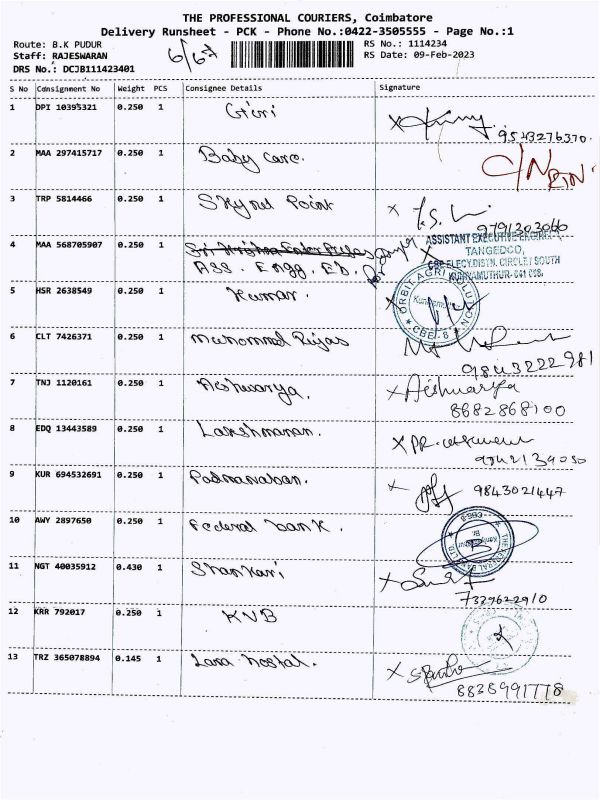 THE PROFESSIONAL COURIERS, Coimbatore
Delivery Runsheet - PCK - Phone No.:0422-3505555 - Page No.:1
Route: B.K PUDUR
RS No.: 1114234
Staff: RAJESWARAN
RS Date: 09-Feb-2023
DRS No.: DCJB111423401
S No Consignment No Weight PCS Consignee Details Signature
1 DPI 10395321 0.250 1
9543276370
2 MAA 297415717 0.250 1 Baby care.
3 TRP 5814466 0.250 1 Skynet Point
9791303060
4 MAA 568705907 0.250 1
Ass. Engg. Eb.
ASSISTANT EXECUTIVE ENGINEER
TANGEDCO,
CBE ELECY.DISTN. CIRCLE / SOUTH
KUNIYAMUTHUR- 641 008.
5 HSR 2638549 0.250 1 Kumar.
ORBIT AGRI SOLUTION
CBE-8
6 CLT 7426371 0.250 1
9843222981
7 TNJ 1120161 0.250 1 Aishwarya.
Aishwarya
8682868100
8 EDQ 13443589 0.250 1 Lakshmanan.
9 KUR 694532691 0.250 1 Padmanaban.
9843021447
10 AWY 2897650 0.250 1 Federal bank.
11 NGT 40035912 0.430 1 Shankari
7329622910
12 KRR 792017 0.250 1 KVB
13 TRZ 365078894 0.145 1 Lana hostal.
8838991778